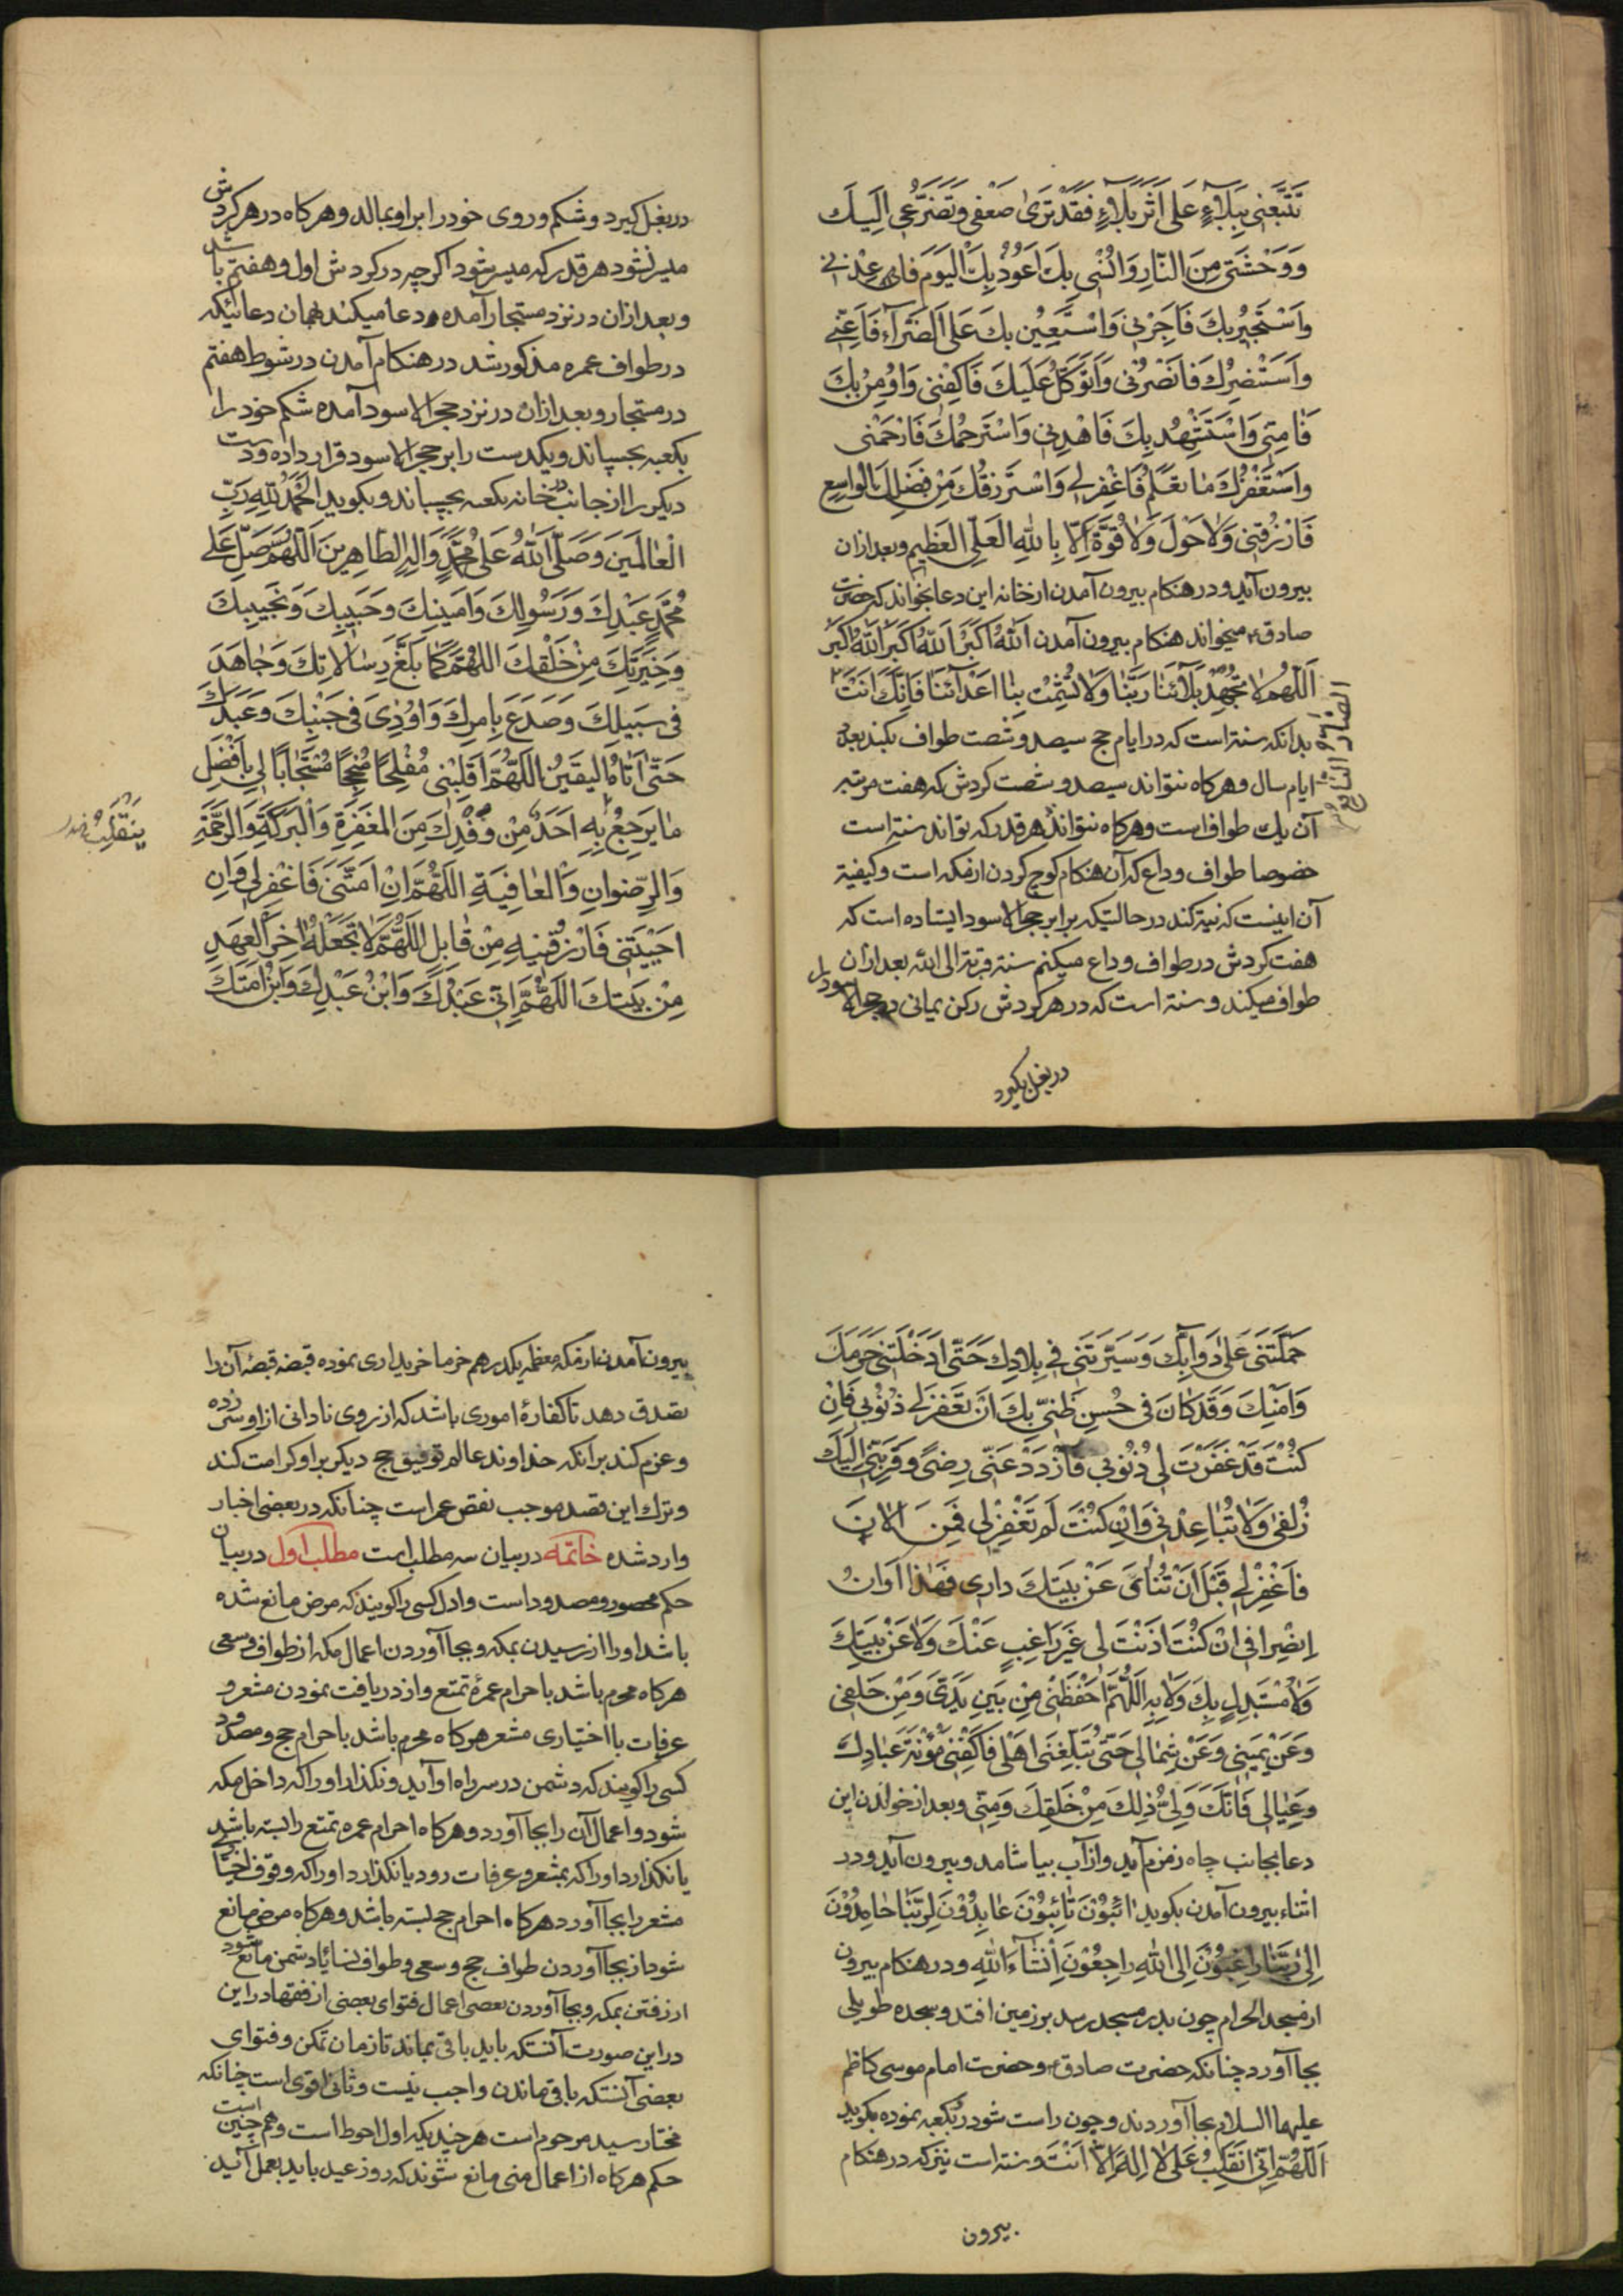 تَتَّبِعَنِي بِبَلَاءٍ عَلَى أَثَرِ بَلَاءٍ فَقَدْ تَرَى ضَعْفِي وَتَضَرُّعِي إِلَيْكَ
وَوَحْشَتِي مِنَ النَّارِ وَانُسْي بِكَ اَعُوذُ بِكَ الْيَوْمَ فَاَعِذْنِي
وَاَسْتَجِيرُ بِكَ فَاَجِرْنِي وَاَسْتَعِينُ بِكَ عَلَى الضَّرَّاءِ فَاَعِنِّي
وَاَسْتَنْصِرُكَ فَانْصُرْنِي وَاَتَوَكَّلُ عَلَيْكَ فَاكْفِنِي وَاُومِنُ بِكَ
فَامِنِّي وَاَسْتَهْدِيكَ فَاهْدِنِي وَاَسْتَرْحِمُكَ فَارْحَمْنِي
وَاَسْتَغْفِرُكَ مِمَا تَعْلَمُ فَاغْفِرْ لِي وَاَسْتَرْزِقُكَ مِنْ فَضْلِكَ الْوَاسِعِ
فَارْزُقْنِي وَلَا حَوْلَ وَلَا قُوَّةَ اِلَّا بِاللهِ الْعَلِيِّ الْعَظِيمِ وبعد ازان
بیرون آید و در هنکام بیرون آمدن از خانه این دعا بخواند که حضرت
صادق ع میخواند هنکام بیرون آمدن اَللهُ اَكْبَرُ اَللهُ اَكْبَرُ اَللهُ اَكْبَرُ
اَللّهُمَّ لَا تُجْهِدْ بَلَآئَنَا رَبَّنَا وَلَا تُشْمِتْ بِنَا اَعْدَآئَنَا فَاِنَّكَ اَنْتَ
الضَّارُّ النَّافِعُ
بدانکه سنة است که در ایام حج سیصد و شصت طواف بکند بعدد
ایام سال و هرکاه نتواند سیصد و شصت کردش که هفت مرتبه
آن یك طواف است و هرکاه نتواند هر قدر که تواند سنة است
خصوصا طواف وداع که آن هنکام کوچ کردن از مکه است و کیفیة
آن اینست که نیة کند در حالتیکه برابر حجر الاسود ایستاده است که
هفت کردش در طواف وداع میکنم سنة قربة الی الله بعد ازان
طواف میکند و سنة است که در هر کردش رکن یمانی و حجر الاسود را
در بغل بکیرد
در بغل کیرد و شکم و روی خود را بر او بمالد و هرکاه در هر کردش
میسر نشود هر قدر که میسر شود اکرچه در کردش اول و هفتم باشد
و بعد ازان در نزد مستجار آمده و دعا میکند همان دعائیکه
در طواف عمره مذکور شد در هنکام آمدن در شوط هفتم
در مستجار و بعد ازان در نزد حجر الاسود آمده شکم خود را
بکعبه بچسپاند و یکدست را بر حجر الاسود قرار داده و دست
دیکر را از جانب در خانه بکعبه بچسپاند و بکوید اَلْحَمْدُ لِلّهِ رَبِّ
الْعَالَمِينَ وَصَلَّى اللهُ عَلَى مُحَمَّدٍ وَالِهِ الطَّاهِرِينَ اَللّهُمَّ صَلِّ عَلَى
مُحَمَّدٍ عَبْدِكَ وَرَسُولِكَ وَاَمِينِكَ وَحَبِيبِكَ وَنَجِيبِكَ
وَخِيَرَتِكَ مِنْ خَلْقِكَ اللّهُمَّ كَمَا بَلَّغَ رِسَالَاتِكَ وَجَاهَدَ
فِي سَبِيلِكَ وَصَدَعَ بِاَمْرِكَ وَاُوذِيَ فِي جَنْبِكَ وَعَبَدَكَ
حَتَّى اَتَاهُ الْيَقِينُ اللّهُمَّ اَقْلِبْنِي مُفْلِحًا مُنْجِحًا مُسْتَجَابًا لِي بِاَفْضَلِ
مَا يَرْجِعُ بِهِ اَحَدٌ مِنْ وَفْدِكَ مِنَ الْمَغْفِرَةِ وَالْبَرَكَةِ وَالرَّحْمَةِ
يَنْقَلِبُ
وَالرِّضْوَانِ وَالْعَافِيَةِ اللّهُمَّ اِنْ اَمَتَّنِي فَاغْفِرْ لِي وَاِنْ
اَحْيَيْتَنِي فَارْزُقْنِيهِ مِنْ قَابِلٍ اللّهُمَّ لَا تَجْعَلْهُ اخِرَ الْعَهْدِ
مِنْ بَيْتِكَ اللّهُمَّ اِنِّي عَبْدُكَ وَابْنُ عَبْدِكَ وَابْنُ اَمَتِكَ
حَمَلْتَنِي عَلَى دَوَابِّكَ وَسَيَّرْتَنِي فِي بِلَادِكَ حَتَّى اَدْخَلْتَنِي حَرَمَكَ
وَاَمْنَكَ وَقَدْ كَانَ فِي حُسْنِ ظَنِّي بِكَ اَنْ تَغْفِرَ لِي ذُنُوبِي فَاِنْ
كُنْتَ قَدْ غَفَرْتَ لِي ذُنُوبِي فَازْدَدْ عَنِّي رِضًى وَقَرِّبْنِي اِلَيْكَ
زُلْفَى وَلَا تُبَاعِدْنِي وَاِنْ كُنْتَ لَمْ تَغْفِرْ لِي فَمِنَ الْانَ
فَاغْفِرْ لِي قَبْلَ اَنْ تَنْأَى عَنْ بَيْتِكَ دَارِي فَهَذَا اَوَانُ
اِنْصِرَافِي اِنْ كُنْتَ اَذِنْتَ لِي غَيْرَ رَاغِبٍ عَنْكَ وَلَا عَنْ بَيْتِكَ
وَلَا مُسْتَبْدِلٍ بِكَ وَلَا بِهِ اَللّهُمَّ احْفَظْنِي مِنْ بَيْنِ يَدَيَّ وَمِنْ خَلْفِي
وَعَنْ يَمِينِي وَعَنْ شِمَالِي حَتَّى تُبَلِّغَنِي اَهْلِي فَاكْفِنِي مَؤُنَةَ عِبَادِكَ
وَعِيَالِي فَاِنَّكَ وَلِيُّ ذلِكَ مِنْ خَلْقِكَ وَمِنِّي و بعد از خواندن این
دعا بجانب چاه زمزم آید و از آب بیاشامد و بیرون آید و در
اثناء بیرون آمدن بکوید ائِبُونَ تَائِبُونَ عَابِدُونَ لِرَبِّنَا حَامِدُونَ
اِلَى رَبِّنَا رَاغِبُونَ اِلَى اللهِ رَاجِعُونَ اِنْشَآءَ اللهِ و در هنکام بیرون
از مسجد الحرام چون بدر مسجد رسد بر زمین افتد و سجده طویلی
بجا آورد چنانکه حضرت صادق ع و حضرت امام موسی کاظم
علیهما السلام بجا آوردند و چون راست شود رو بکعبه نموده بکوید
اَللّهُمَّ اِنِّي اَنْقَلِبُ عَلَى لَا اِلَهَ اِلَّا اَنْتَ و سنة است نیز که در هنکام
بیرون
بیرون آمدن از مکه معظمه یکدرهم خرما خریداری نموده قبضه قبضه آن را
تصدق دهد تا کفارۀ اموری باشد که از روی نادانی از او سر زده
و عزم کند بر آنکه خداوند عالم توفیق حج دیکر بر او کرامت کند
و ترك این قصد موجب نقص عمر است چنانکه در بعضی اخبار
وارد شده خاتمه در بیان سه مطلب است مطلب اول در بیان
حکم محصور و مصدود است و اول کسی را کویند که مرض مانع شده
باشد او را از رسیدن بمکه و بجا آوردن اعمال مکه از طواف و سعی
هرکاه محرم باشد باحرام عمرۀ تمتع و از دریافت نمودن مشعر و
عرفات با اختیاری مشعر هرکاه محرم باشد باحرام حج و مصدود
کسی را کویند که دشمن در سر راه او آید و نکذارد او را که داخل مکه
شود و اعمال آن را بجا آورد و هرکاه احرام عمره تمتع را بسته باشد
یا نکذارد او را که بمشعر و عرفات رود یا نکذارد او را که وقوف اختیاری
مشعر را بجا آورد هرکاه احرام حج بسته باشد و هرکاه مرض مانع
شود از بجا آوردن طواف حج و سعی و طواف نساء یا دشمن مانع شود
از رفتن بمکه و بجا آوردن بعضی اعمال فتوای بعضی از فقها در این
در این صورت آنستکه باید باقی بماند تا زمان تمکن و فتوای
بعضی آنستکه باقی ماندن واجب نیست و ثانی اقوی است چنانکه
مختار سید مرحوم است هر چندیکه اول احوط است و همچنین است
حکم هرکاه از اعمال منی مانع شوند که روز عید باید بعمل آید